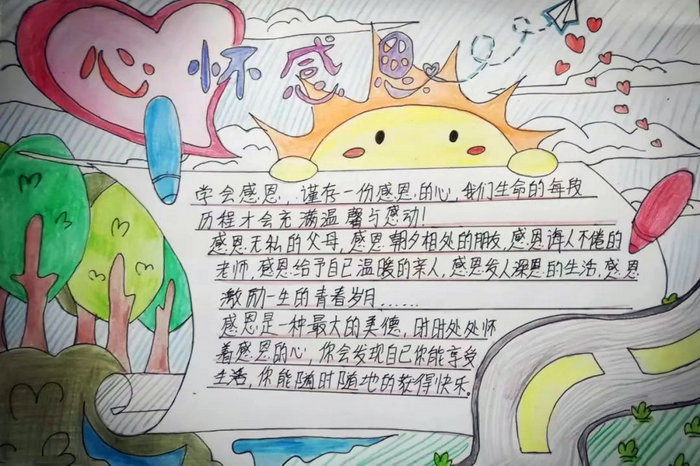 心怀感恩
学会感恩,谨存一份感恩的心,我们生命的每段
历程才会充满温馨与感动!
感恩无私的父母,感恩朝夕相处的朋友,感恩诲人不倦的
老师,感恩给予自己温暖的亲人,感恩发人深思的生活,感恩
激励一生的青春岁月……
感恩是一种最大的美德,时时处处怀
着感恩的心,你会发现自己你能享受
生活,你能随时随地的获得快乐。